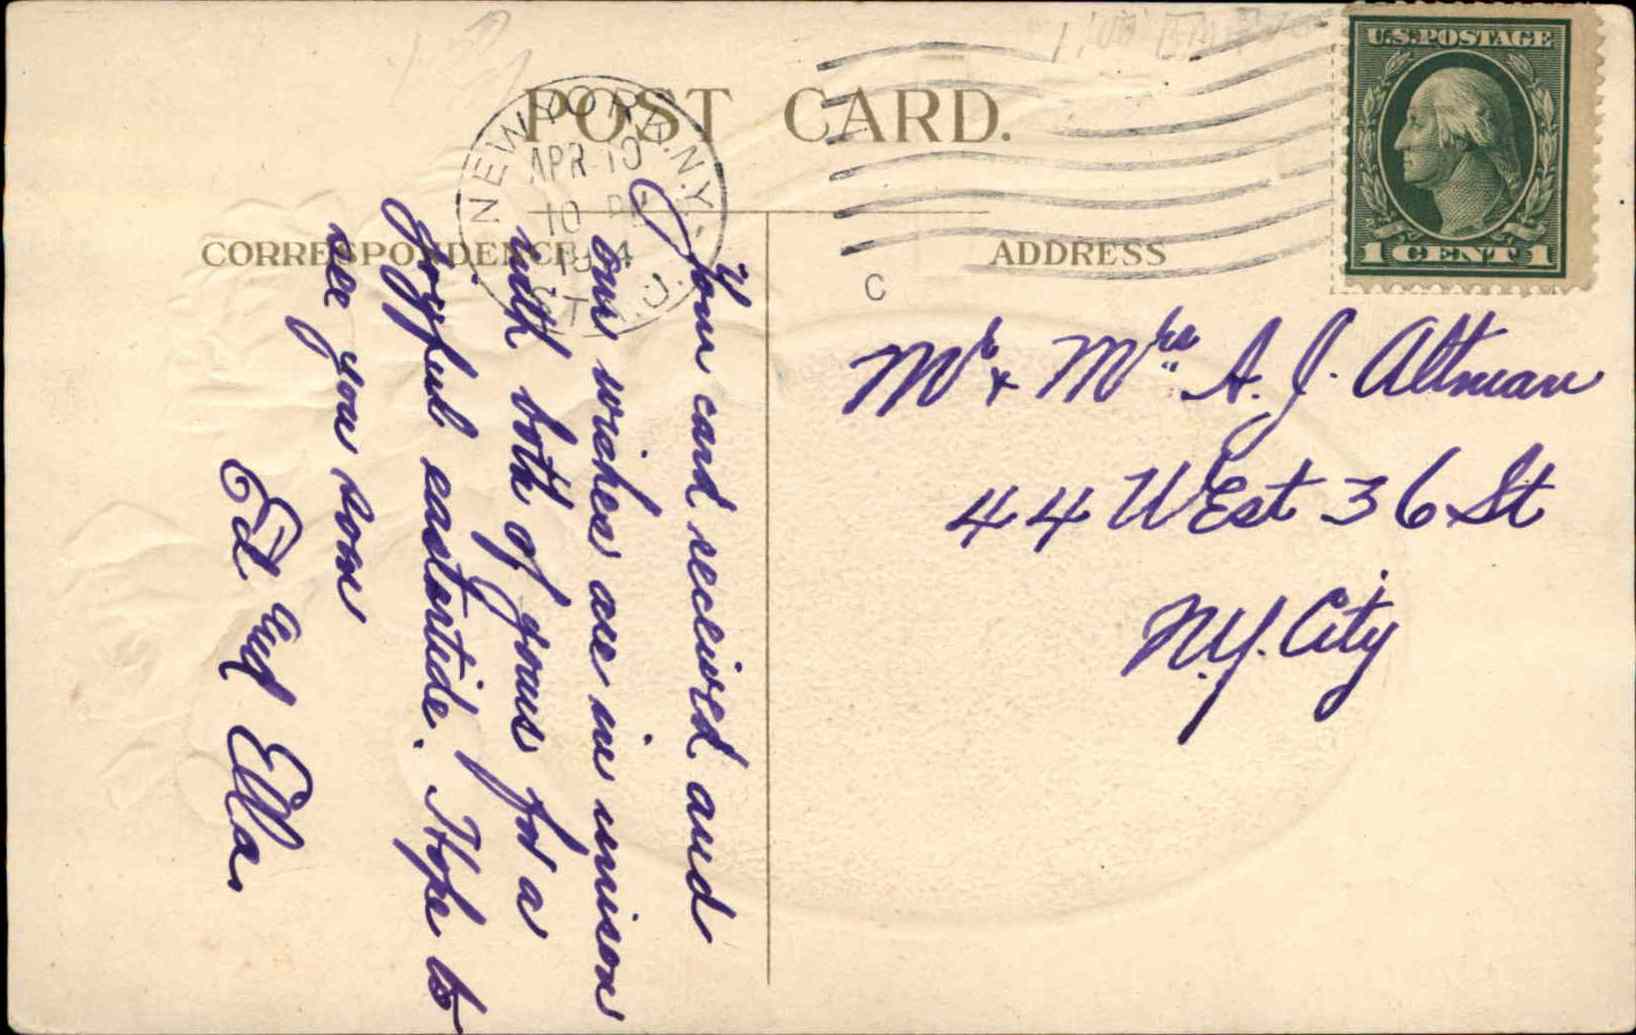 POST CARD.
U.S. POSTAGE
1 CENT 1
NEW YORK, N.Y.
APR 10
10 PM
CORRESPONDENCE
ADDRESS
C
Your card received and
our wishes are in unison
with both of yours for a
joyful eastertide. Hope to
see you soon
Ed and Ella.
Mr & Mrs A. J. Altman
44 West 36 St
N.Y. City